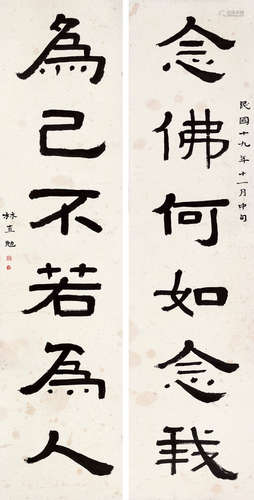 念佛何如念我
民國十九年十一月中旬
為己不若為人
林直勉